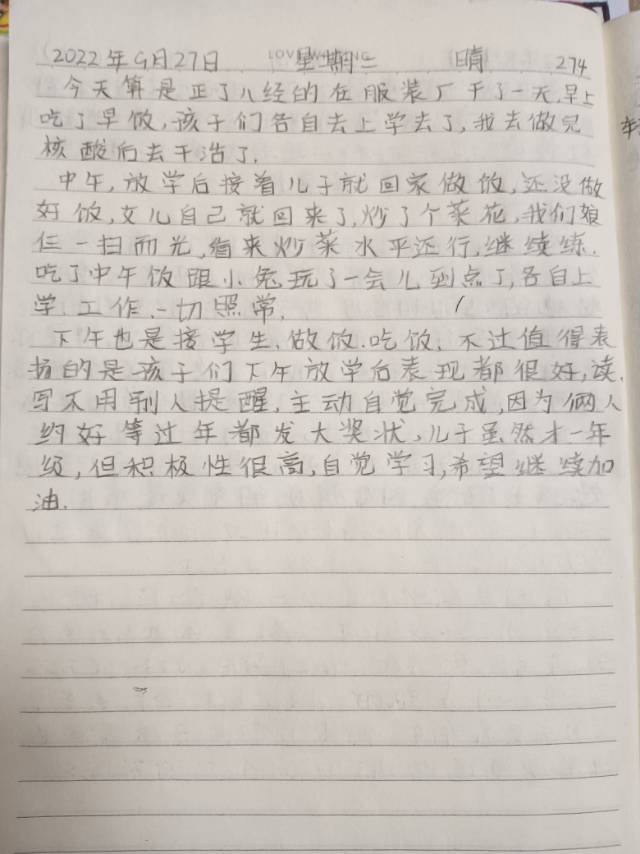 2022年9月27日 星期二 晴 274
今天算是正了八经的在服装厂干了一天,早上
吃了早饭,孩子们各自去上学去了,我去做完
核酸后去干活了.
中午,放学后接着儿子就回家做饭,还没做
好饭,女儿自己就回来了,炒了个菜花,我们娘
仨一扫而光,看来炒菜水平还行,继续练.
吃了中午饭跟小兔玩了一会儿到点了,各自上
学,工作.一切照常.
下午也是接学生,做饭.吃饭,不过值得表
扬的是孩子们下午放学后表现都很好,读.
写不用别人提醒,主动自觉完成,因为俩人
约好等过年都发大奖状,儿子虽然才一年
级,但积极性很高,自觉学习,希望继续加
油.